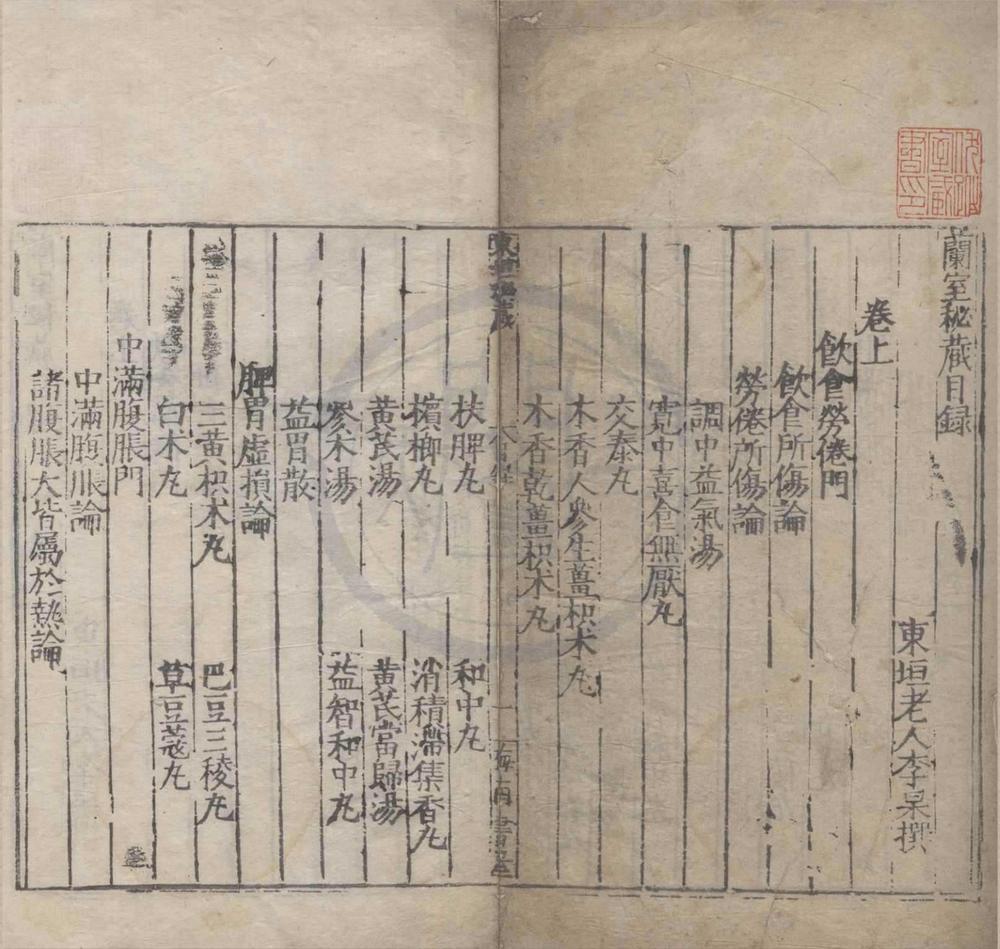 蘭室秘蔵目録
東垣老人李杲撰
卷上
飲食勞倦門
飲食所傷論
勞倦所傷論
調中益氣湯
寛中喜食無厭丸
交泰丸
木香人參生薑枳朮丸
木香乾薑枳朮丸
一
海南書屋
扶脾丸 和中丸
檳榔丸 消積滯集香丸
黄芪湯 黄芪當歸湯
參朮湯 益智和中丸
益胃散
脾胃虛損論
三黄枳朮丸 巴豆三稜丸
白朮丸 草豆蔻丸
中滿腹脹門
中滿腹脹論
諸腹脹大皆屬於熱論